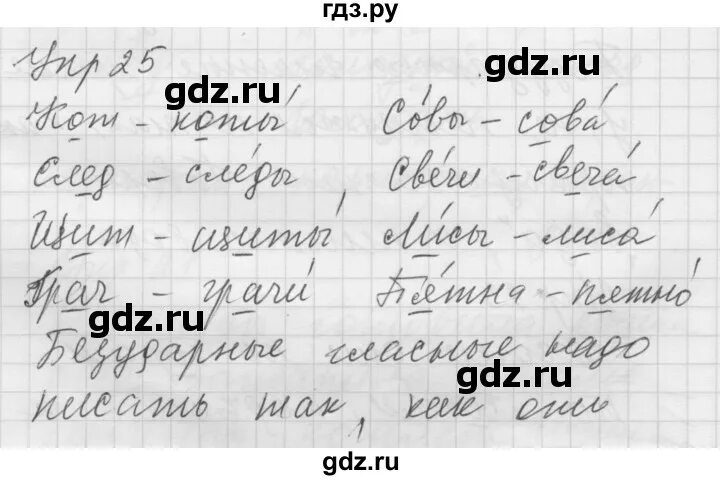 гдз.ру
Упр 25
gdz.ru
gdz.ru
Кот - коты́ Со́вы - сова́
След - сле́ды, Све́чи - свеча́
gdz.ru
Щит - щиты́ Ли́сы - лиса́
gdz.ru
Грач - грачи́ Пя́тна - пятно́
gdz.ru
Безударные гласные надо
gdz.ru
писать так, как они
gdz.ru